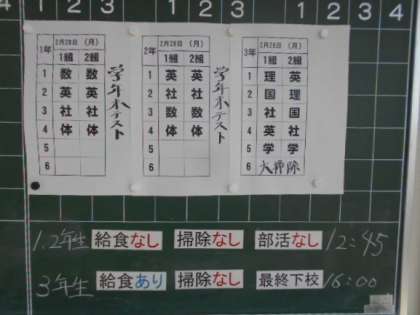 4 1 2 3 1 2 3 1 2 3 4
1年 2月28日 (月)
1組 2組
1 数 数
2 英 英
3 社 社
4 体 体
5
6
学年末テスト
2年 2月28日 (月)
1組 2組
1 英 英
2 社 社
3 数 数
4 体 体
5
6
学年末テスト
3年 2月28日 (月)
1組 2組
1 理 英
2 国 理
3 社 国
4 英 社
5 学 学
6 大掃除
1.2年生 給食なし 掃除なし 部活なし 12:45
3年生 給食あり 掃除なし 最終下校 16:00